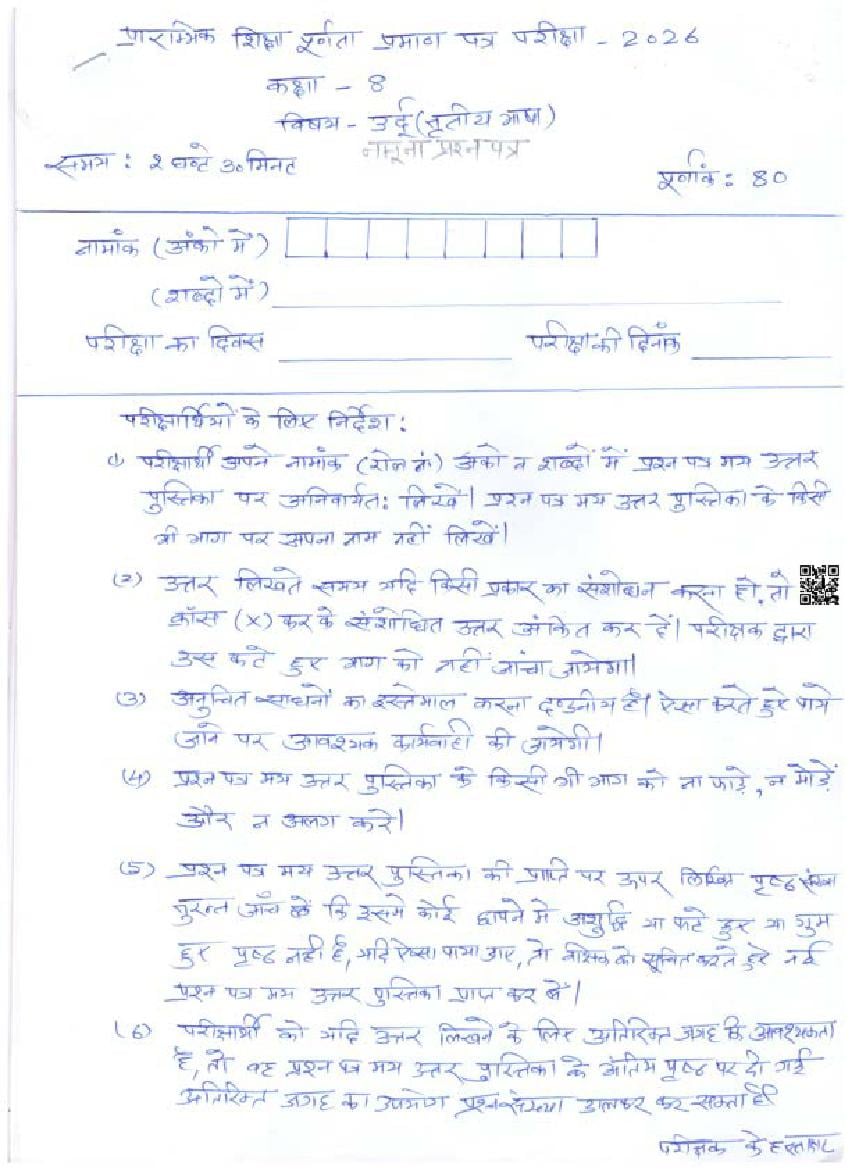 प्रारम्भिक शिक्षा पूर्णता प्रमाण पत्र परीक्षा - 2026
कक्षा - 8
विषय - उर्दू (तृतीय भाषा)
नमूना प्रश्न पत्र
समय : 2 घण्टे 30 मिनट
पूर्णांक : 80
नामांक (अंको में)
(शब्दो में)
परीक्षा का दिवस
परीक्षा की दिनांक
परीक्षार्थियों के लिए निर्देश :
(1) परीक्षार्थी अपने नामांक (रोल नं) अंको व शब्दों में प्रश्न पत्र मय उत्तर
पुस्तिका पर अनिवार्यत: लिखें। प्रश्न पत्र मय उत्तर पुस्तिका के किसी
भी भाग पर अपना नाम नहीं लिखें।
(2) उत्तर लिखते समय यदि किसी प्रकार का संशोधन करना हो, तो
क्रॉस (X) कर के संशोधित उत्तर अंकित कर दें। परीक्षक द्वारा
उस कटे हुए भाग को नहीं जांचा जायेगा।
(3) अनुचित साधनों का इस्तेमाल करना दण्डनीय है। ऐसा करते हुए पाये
जाने पर आवश्यक कार्यवाही की जायेगी।
(4) प्रश्न पत्र मय उत्तर पुस्तिका के किसी भी भाग को ना फाड़े, न मोड़ें
और न अलग करे।
(5) प्रश्न पत्र मय उत्तर पुस्तिका की प्राप्ति पर ऊपर लिखित पृष्ठ संख्या
तुरन्त जाँच लें कि इसमे कोई छापने मे अशुद्धि या फटे हुए या गुम
हुए पृष्ठ नहीं है, यदि ऐसा पाया जाए, तो वीक्षक को सूचित करते हुए नई
प्रश्न पत्र मय उत्तर पुस्तिका प्राप्त कर लें।
(6) परीक्षार्थी को यदि उत्तर लिखने के लिए अतिरिक्त जगह कि आवश्यकता
है, तो वह प्रश्न पत्र मय उत्तर पुस्तिका के अंतिम पृष्ठ पर दी गई
अतिरिक्त जगह का उपयोग प्रश्न संख्या डालकर कर सकता है।
परीक्षक के हस्ताक्षर